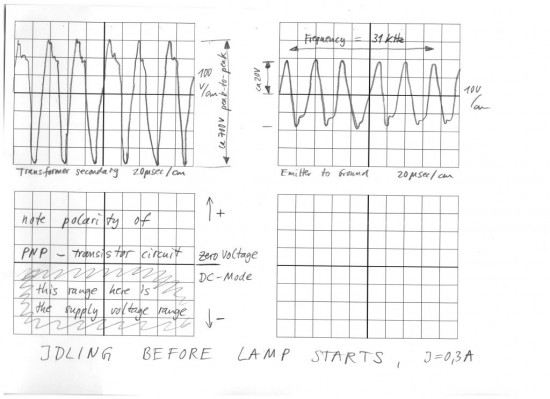 Frequency = 31 kHz
100 V/cm
ca 710V peak-to-peak
ca 20V
10V/cm
Transformer secondary 20µsec/cm
Emitter to Ground 20µsec/cm
note polarity of
PNP - transistor circuit
this range here is
the supply voltage range
+
zero voltage
DC-Mode
-
IDLING BEFORE LAMP STARTS, J=0,3A